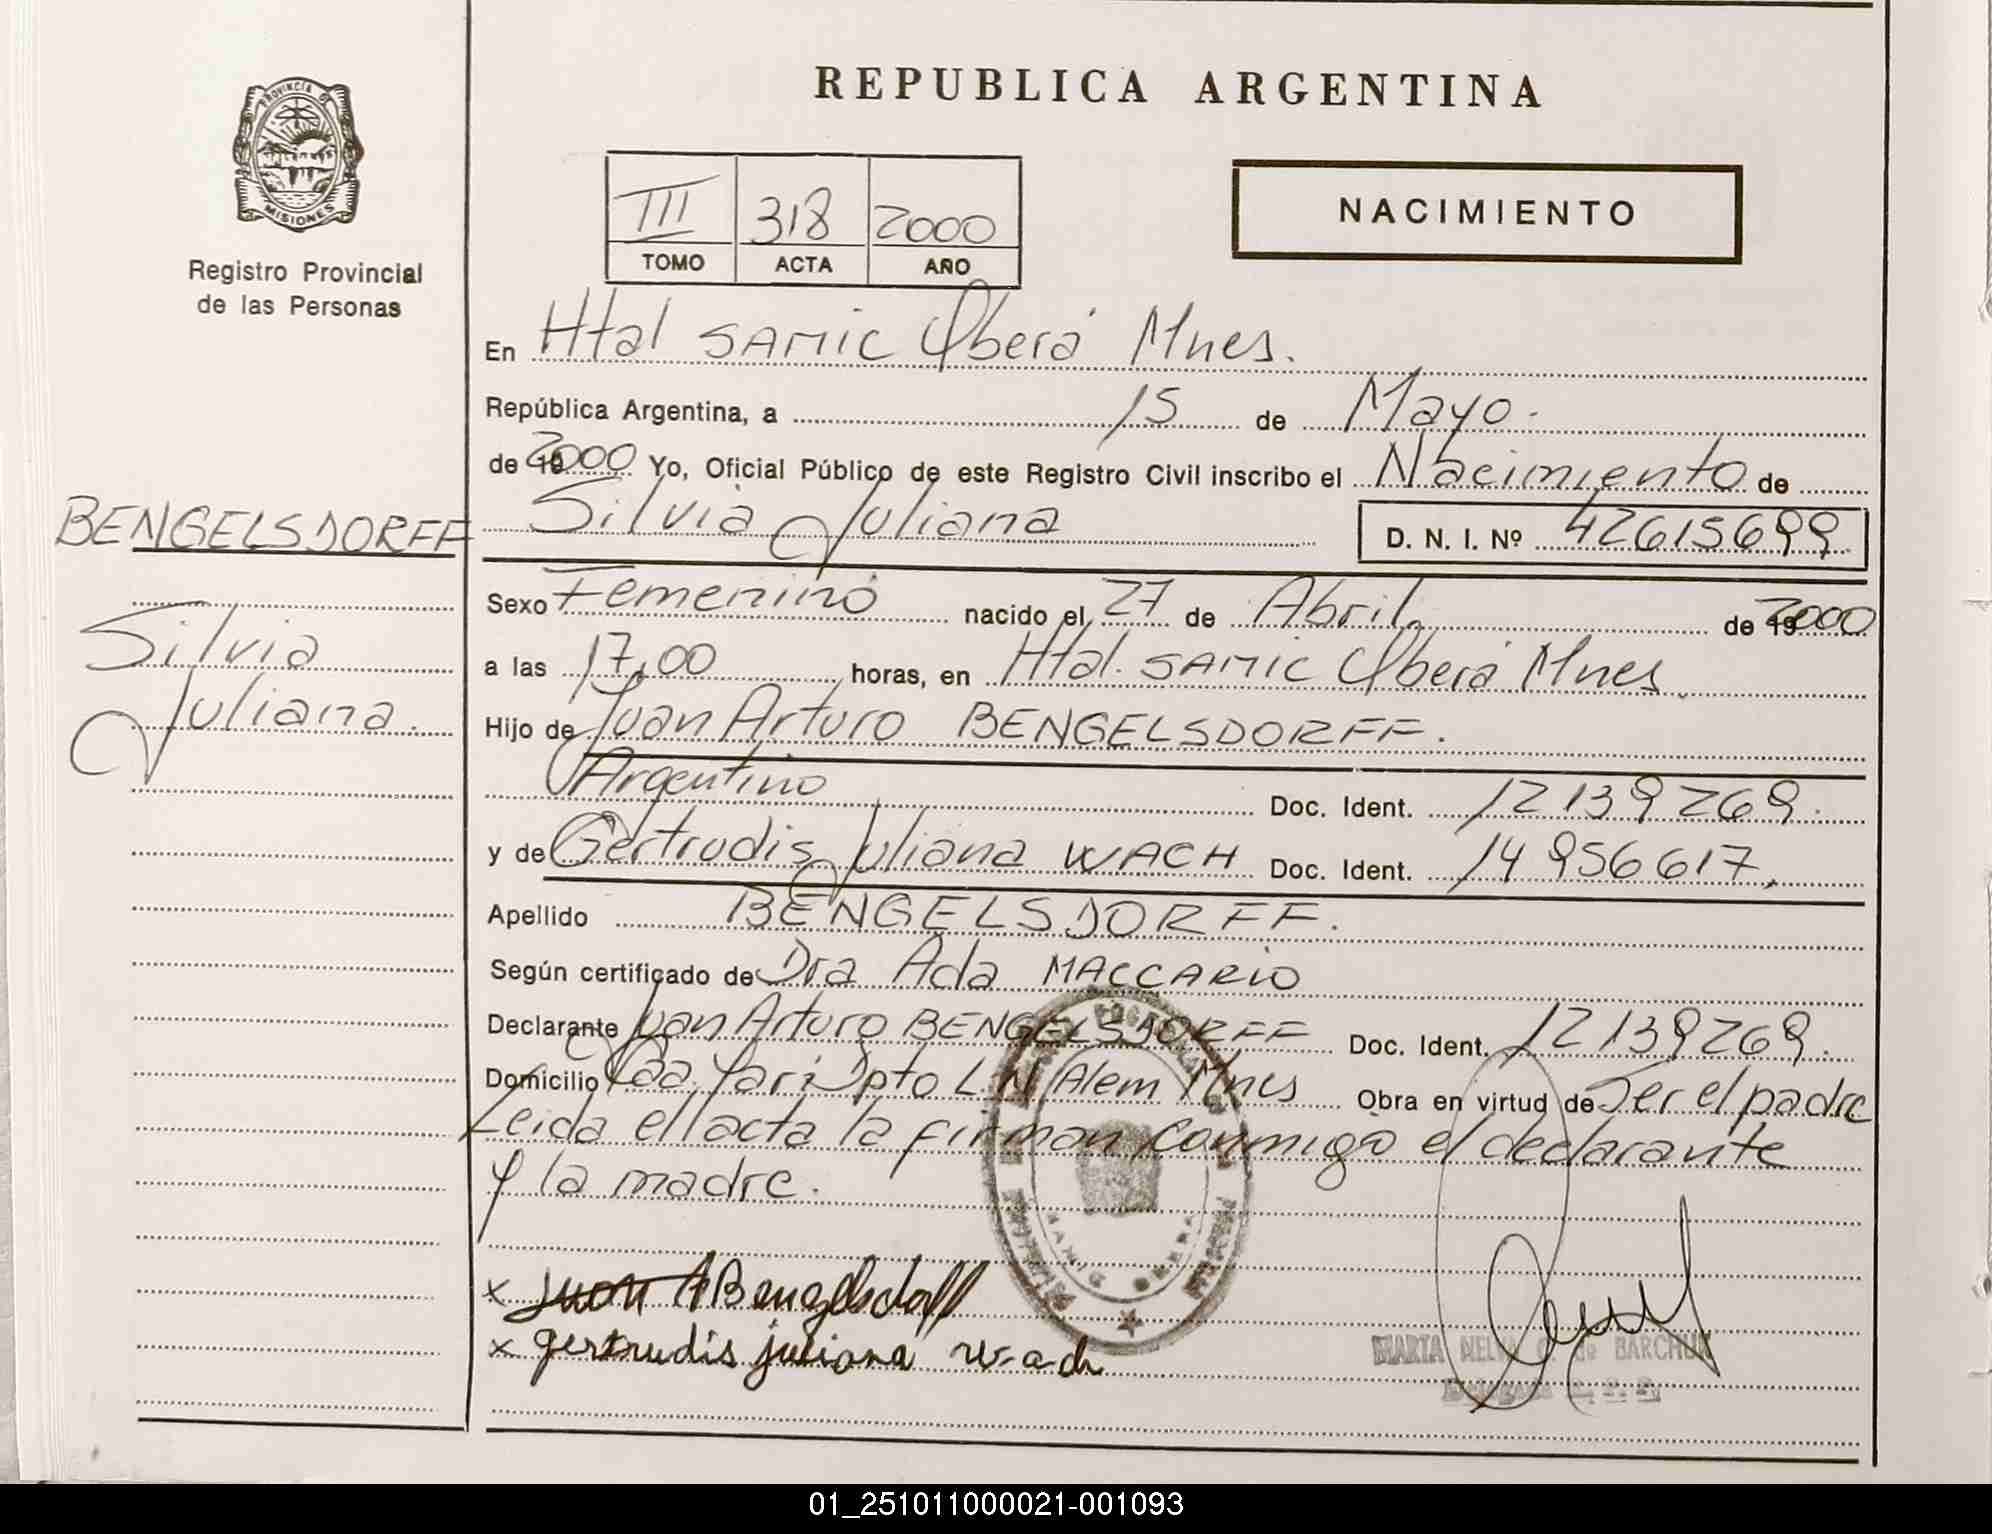 REPUBLICA ARGENTINA
PROVINCIA DE
MISIONES
Registro Provincial
de las Personas
III 318 2000
TOMO ACTA AÑO
NACIMIENTO
En Htal SAMIC Oberá Mnes.
República Argentina, a 15 de Mayo.
de 2000 Yo, Oficial Público de este Registro Civil inscribo el Nacimiento de
BENGELSDORFF
Silvia Juliana D. N. I. Nº 42615699
Sexo Femenino nacido el 27 de Abril de 2000
Silvia
Juliana.
a las 17,00 horas, en Htal. SAMIC Oberá Mnes
Hijo de Juan Arturo BENGELSDORFF.
Argentino Doc. Ident. 12139269.
y de Gertrudis Juliana WACH Doc. Ident. 14956617,
Apellido BENGELSDORFF.
Según certificado de Dra Ada MACCARIO
Declarante Juan Arturo BENGELSDORFF Doc. Ident. 12139269.
Domicilio Yari Dpto L.N Alem Mnes Obra en virtud de Ser el padre
Leida el acta la firman conmigo el declarante
y la madre.
x Juan A Bengelsdorff
x gertrudis juliana wach
MARTA NELVA de BARCHUK
01_251011000021-001093